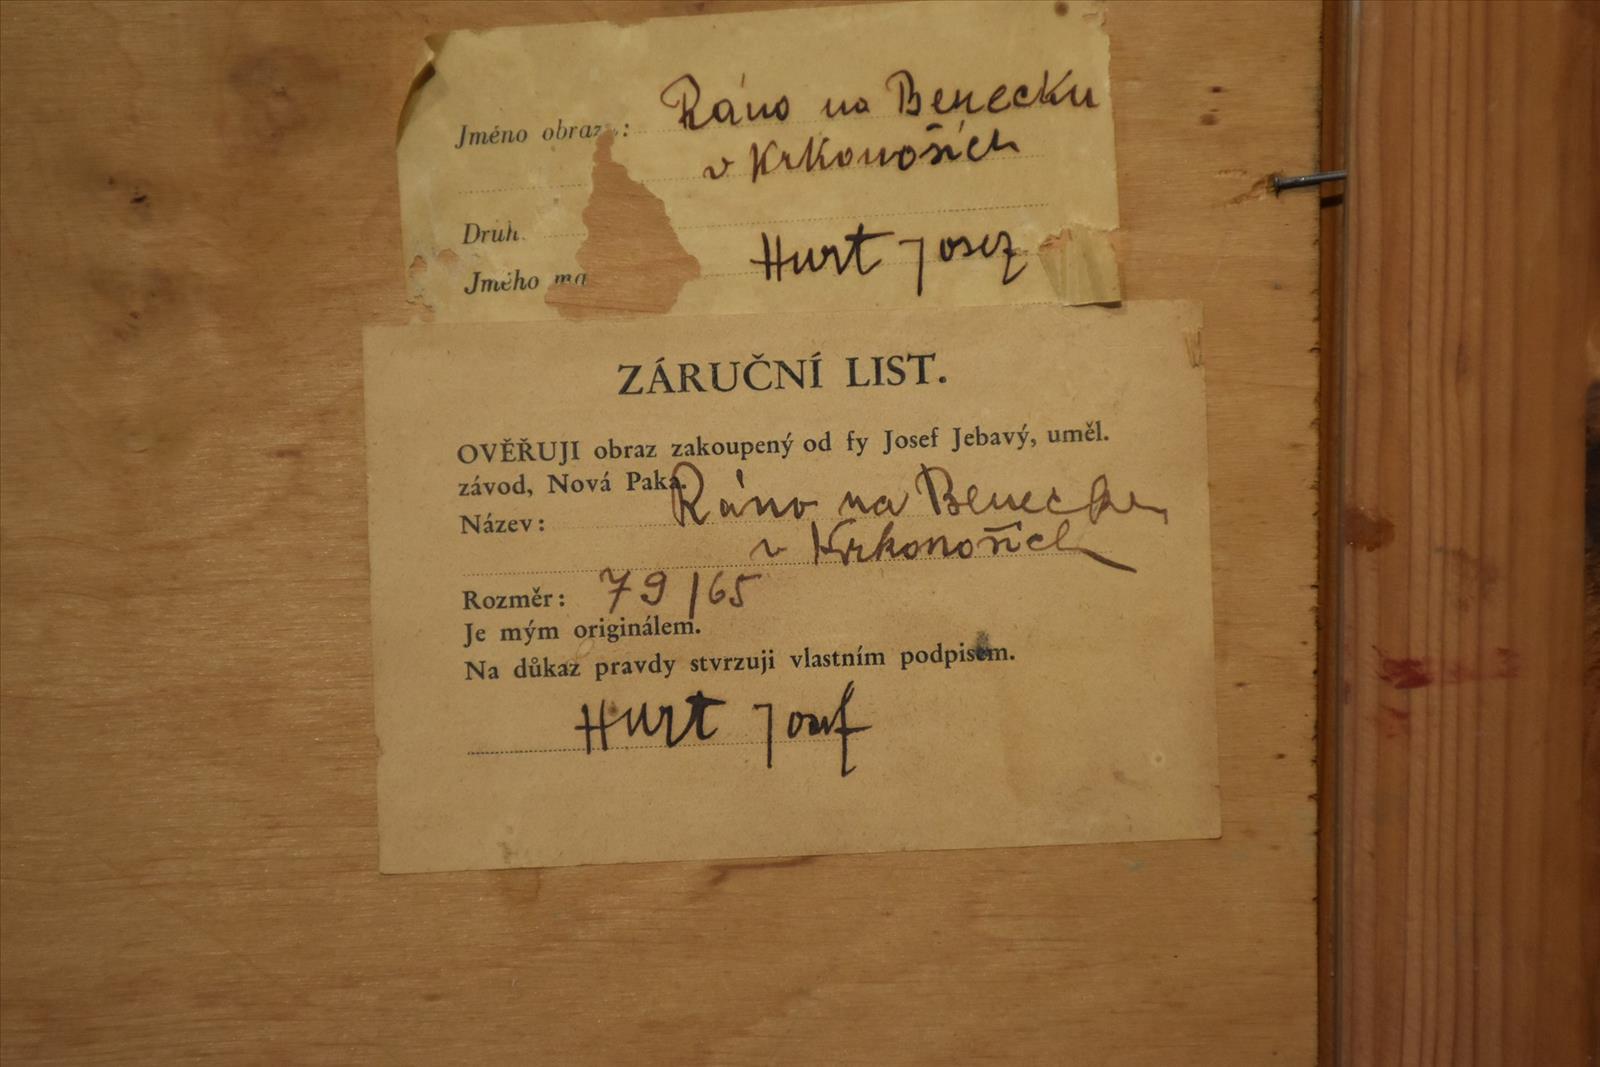 Jméno obrazu: Ráno na Benecku
v Krkonoších
Druh
Jméno ma Hurt Josef
ZÁRUČNÍ LIST.
OVĚŘUJI obraz zakoupený od fy Josef Jebavý, uměl.
závod, Nová Paka.
Název: Ráno na Benecku
v Krkonoších
Rozměr: 79/65
Je mým originálem.
Na důkaz pravdy stvrzuji vlastním podpisem.
Hurt Josef